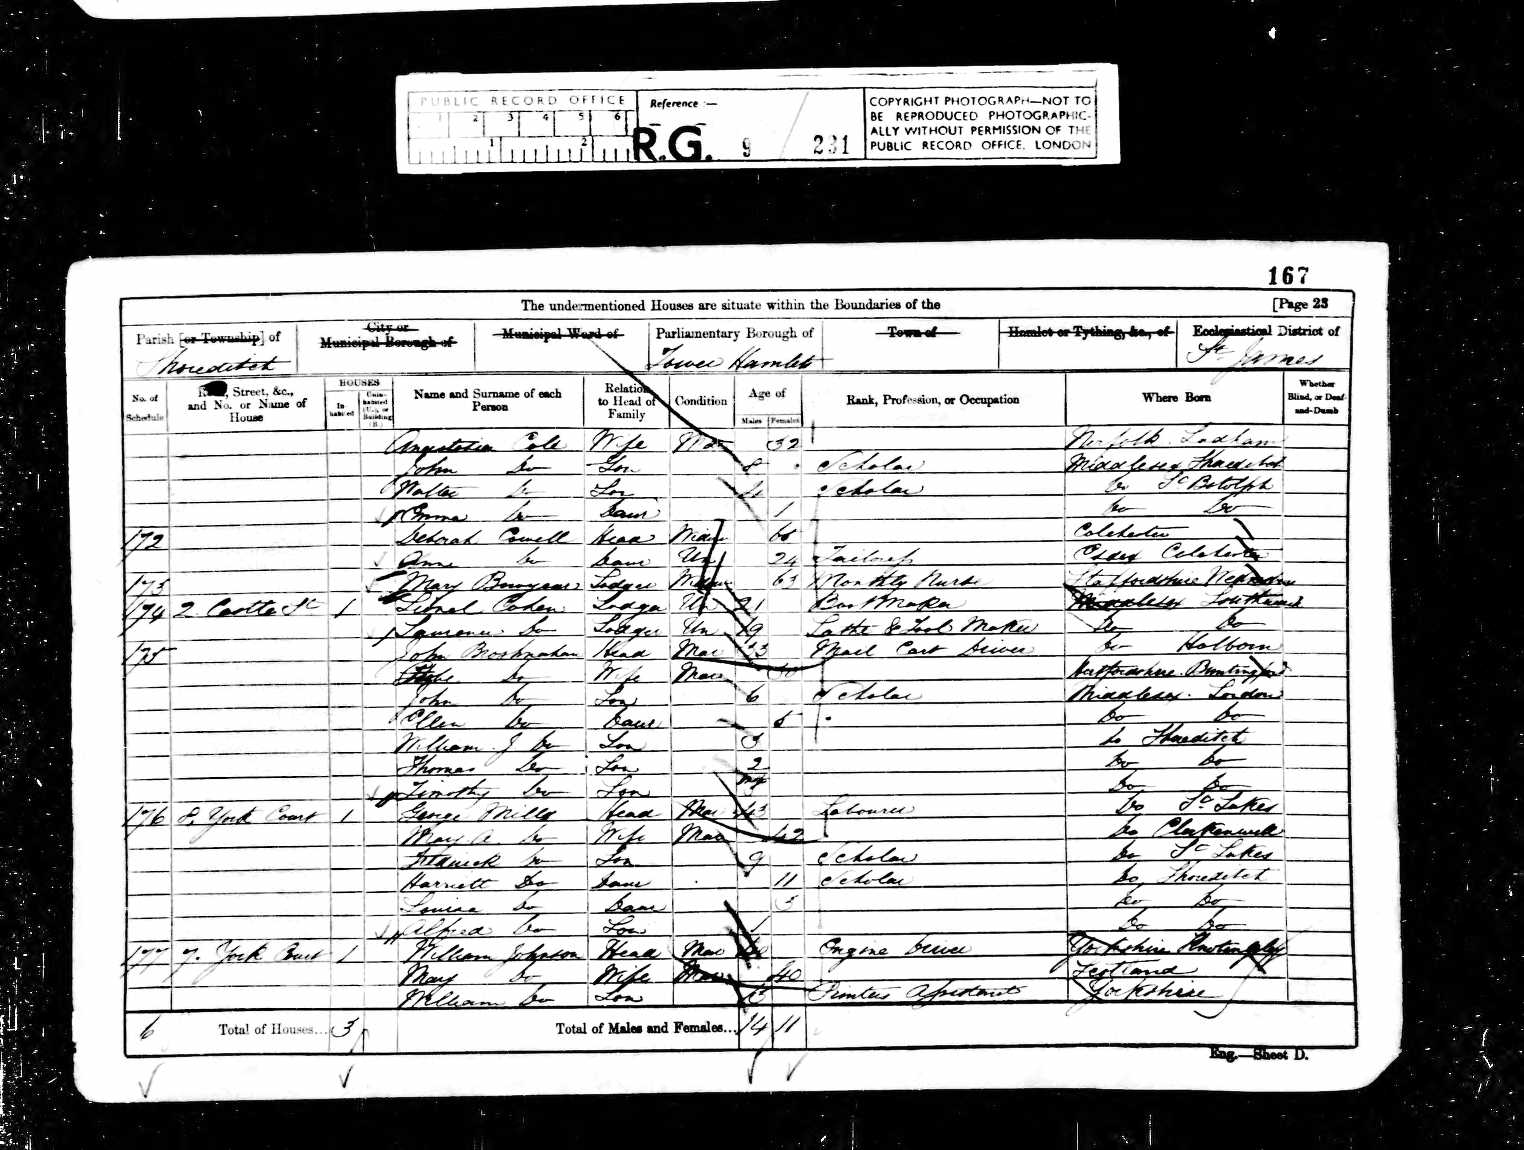 PUBLIC RECORD OFFICE
1 2 3 4 5 6
1 2
Reference :—
R.G. 9 / 231
COPYRIGHT PHOTOGRAPH—NOT TO
BE REPRODUCED PHOTOGRAPHIC-
ALLY WITHOUT PERMISSION OF THE
PUBLIC RECORD OFFICE, LONDON
167
The undermentioned Houses are situate within the Boundaries of the [Page 23
Parish [or Township] of City or Municipal Borough of Municipal Ward of Parliamentary Borough of Town of Hamlet or Tything, &c., of Ecclesiastical District of
Shoreditch Tower Hamlets St James
No. of Schedule Street, &c., and No. or Name of House HOUSES Inhabited Uninhabited (U.), or Building (B.) Name and Surname of each Person Relation to Head of Family Condition Age of Males Females Rank, Profession, or Occupation Where Born Whether Blind, or Deaf-and-Dumb
Cole Wife Mar 32 Norfolk Ludham
John Do Son 8 Scholar Middlesex Shoreditch
Walter Do Son 4 Scholar Do St Botolph
Emma Do Daur 1 Do Do
172 Deborah Cowell Head Widow Colchester
Ann Do Daur Un 24 Tailoress Essex Colchester
173 Mary Lodger Widow 63 Monthly Nurse Staffordshire
174 2 Castle St 1 Lionel Cohen Lodger Un 21 Boot Maker Middlesex
Laurence Do Lodger Un 19 Lathe & Tool Maker Do Do
175 John Brosnahan Head Mar 33 Mail Cart Driver Do Holborn
Do Wife Mar 30 Hertfordshire Buntingford
John Do Son 6 Scholar Middlesex London
Ellen Do Daur 5 Do Do
William J Do Son 3 Do Shoreditch
Thomas Do Son 2 Do Do
Timothy Do Son Do Do
176 8 York Court 1 George Mills Head Mar 43 Labourer Do St Lukes
Mary A. Do Wife Mar 42 Do Clerkenwell
Fredrick Do Son 9 Scholar Do St Lukes
Harriett Do Daur 11 Scholar Do Shoreditch
Louisa Do Daur 3 Do Do
Alfred Do Son 1 Do Do
177 7. York Court 1 William Johnson Head Mar 40 Engine Driver Yorkshire Knottingley
Mary Do Wife Mar 40 Scotland
William Do Son 15 Printers Assistant Yorkshire
6 Total of Houses... 3 Total of Males and Females... 14 11
Eng.—Sheet D.